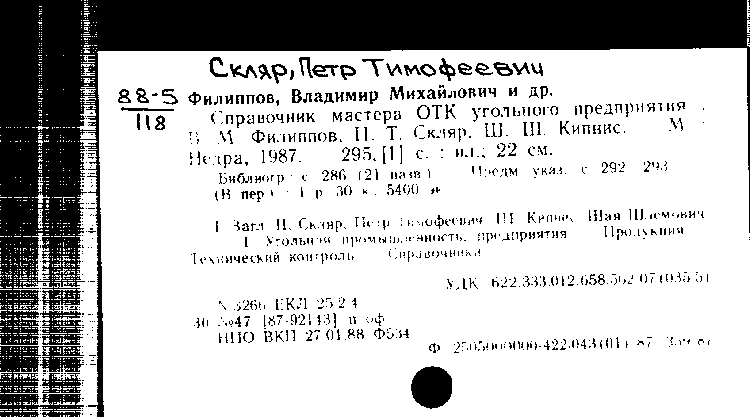 Скляр, Петр Тимофеевич
88-5
118
Филиппов, Владимир Михайлович и др.
Справочник мастера ОТК угольного предприятия
В. М. Филиппов, П. Т. Скляр, Ш. Ш. Кипнис. М
Недра, 1987. 295, [1] с. : ил.; 22 см.
Библиогр с 286 (21 назв) Предм указ. с 292 293
(В пер) 1 р 30 к 5400 э
I Загл II. Скляр, Петр Тимофеевич III Кипнис Шая Шлемович
1 Угольная промышленность, предприятия Продукция
Технический контроль Справочники
УДК 622.333.012.658.562 07(035.5)
N 5266 ЕКЛ 25 2 4
30 №47 [87-92143] п оф
НПО ВКП 27 01.88 Ф534
Ф 2505000000-422.043(01) 87